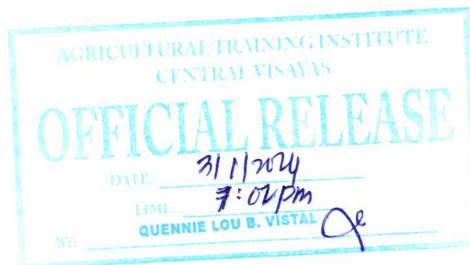 AGRICULTURAL TRAINING INSTITUTE
CENTRAL VISAYAS
OFFICIAL RELEASE
DATE: 3/1/2024
TIME: 7:02pm
QUENNIE LOU B. VISTAL
BY: